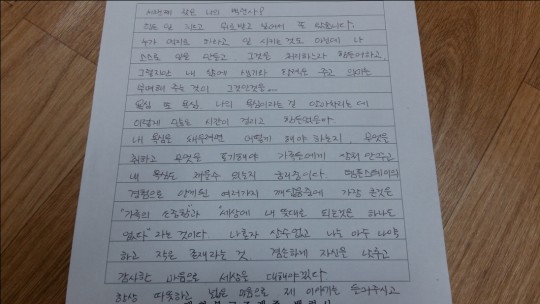 힘든 일 치르고 위로받고 싶어서 또 왔습니다.
누가 억지로 하라고 일 시키는 것도 아닌데 나
스스로 일을 만들고 그것을 처리하느라 힘들어하고,
그렇지만 내 삶에 활력과 주고 의미를
부여해 주는 것이 그것인것을...
욕심 또 욕심. 나의 욕심이라는 걸 알아차리는데
이렇게 오랜 시간이 걸리고 힘들었을까
내 욕심을 채우려면 어떻게 해야 하는지 무엇을
취하고 무엇을 포기해야 가족들에게 상처 안주고
내 욕심도 채울수 있는지 생각중이다. 템플스테이의
경험으로 얻게된 여러가지 깨달음중에 가장 큰것은
"가족의 소중함"과 "세상에 내 뜻대로 되는것은 하나도
없다" 라는 것이다. 나혼자 살수없고 나는 아주 나약
하고 작은 존재라는 것 겸손하게 자신을 낮추고
감사한 마음으로 세상을 대해야겠다.
항상 따뜻하고 넓은 마음으로 제 이야기를 들어주시고